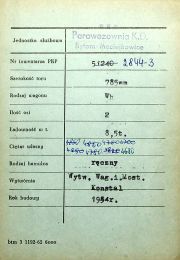 P K P
Jednostka służbowa
Parowozownia K.D.
Bytom-Maciejkowice
Nr inwentarza PKP 5.1240 2844-3
Szerokość toru 785mm
Rodzaj wagonu Wł
Ilość osi 2
Ładowność w t. 8,5t.
Ciężar własny
Rodzaj hamulca ręczny
Wytwórnia Wytw. Wag. i Most.
Konstal
Rok budowy 1954r.